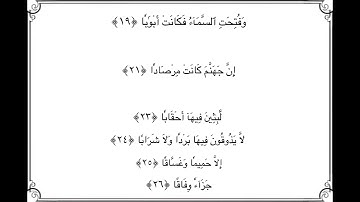 وَفُتِحَتِ ٱلسَّمَآءُ فَكَانَتْ أَبْوَٰبًا ﴿١٩﴾
إِنَّ جَهَنَّمَ كَانَتْ مِرْصَادًا ﴿٢١﴾
لَّٰبِثِينَ فِيهَآ أَحْقَابًا ﴿٢٣﴾
لَّا يَذُوقُونَ فِيهَا بَرْدًا وَلَا شَرَابًا ﴿٢٤﴾
إِلَّا حَمِيمًا وَغَسَّاقًا ﴿٢٥﴾
جَزَآءً وِفَاقًا ﴿٢٦﴾